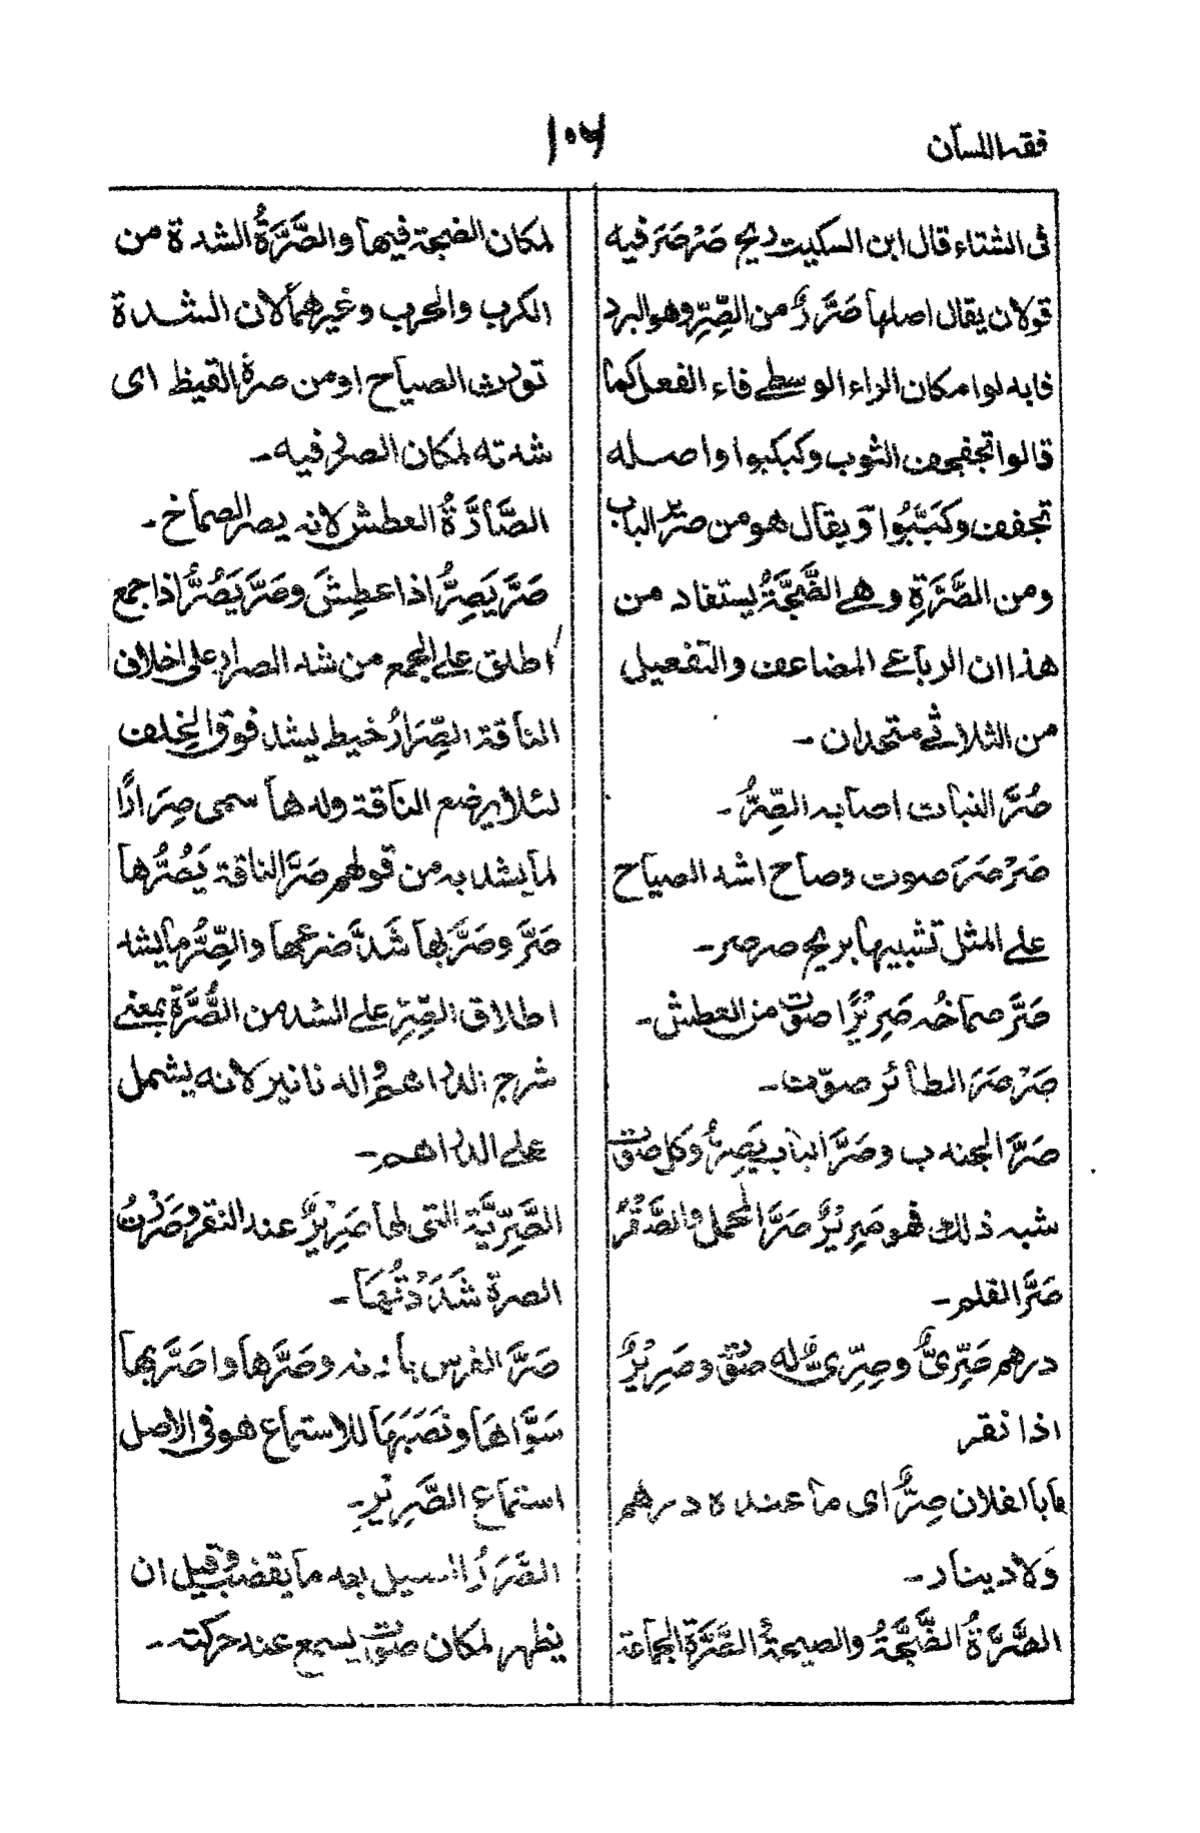 فقه اللسان
١٠٦
فی الشتاء قال ابن السکیت ریح صَرْصَر فیه
قولان یقال اصلها صَرَّرٌ من الصِّرِّ وهو البرد
فابدلوا مکان الراء الوسطے فاء الفعل کما
قالوا تجفجف الثوب وکبکبوا واصله
تجفف وکَبَّبُوا ویقال هو من صریر الباب
ومن الصَّرَّةِ وهے الضَّجَّةُ یستفاد من
هذا ان الرباعے المضاعف والتفعیل
من الثلاثے متحدان ـ
صُرَّ النبات اصابه الصِّرُّ ـ
صَرْصَرَ صوت وصاح اشد الصیاح
علے المثل تشبیها بریح صرصر ـ
صَرَّ صماخُه صَرِیْرًا صوّت من العطش ـ
صَرْصَرَ الطائر صوّت ـ
صَرَّ الجندب وصَرَّ الباب یَصِرُّ وکل صوت
شبه ذلك فهو صَرِیْرٌ صَرَّ المحمل والصَّقْرُ
صَرَّ القلم ـ
درهم صَرِّیٌّ وصِرِّیٌّ له صوت وصَرِیْرٌ
اذا نقر
ما بالفلان صِرٌّ ای ما عنده درهم
وَلا دینار ـ
الصَّرَّةُ الضَّجَّةُ والصیحةُ الصَّرَّة الجماعة
لمکان الضجة فیها والصَّرَّةُ الشدة من
الکرب والحرب وغیرهما لان الشدة
تورث الصیاح او من صرة القیظ ای
شدته لمکان الصر فیه ـ
الصَّارَّةُ العطش لانه یصر الصماخ ـ
صَرَّ یَصِرُّ اذا عطِشَ وصَرَّ یَصُرُّ اذا جمع
اطلق علے الجمع من شد الصرار علی اخلاف
الناقة الصِّرَارُ خیط یشد فوق الخِلف
لئلا یرضع الناقة ولدها سمی صِرَارًا
لما یشد به من قولهم صَرَّ الناقة یَصُرُّها
صَرَّ وصَرَّ بها شَدَّ ضرعها والصِّرُّ ما یشد
اطلاق الصِّرِّ علے الشد من الصُّرَّة بمعنے
شرج الدراهم والدنانیر لانه یشمل
علے الدراهم ـ
الصَّرِّیَّة التی لها صَرِیْرٌ عند النقر وصَرَرْتُ
الصرة شَدَدْتُّهَا ـ
صَرَّ الفرس باذنه وصَرَّها واصَرَّ بها
سَوَّاهَا ونَصَبَهَا للاستماع هو فی الاصل
استماع الصَّرِیْرِ ـ
الصَّرَرُ السبل بعد ما یقضب وقیل ان
یظهر لمکان صوت یسمع عند حرکته ـ